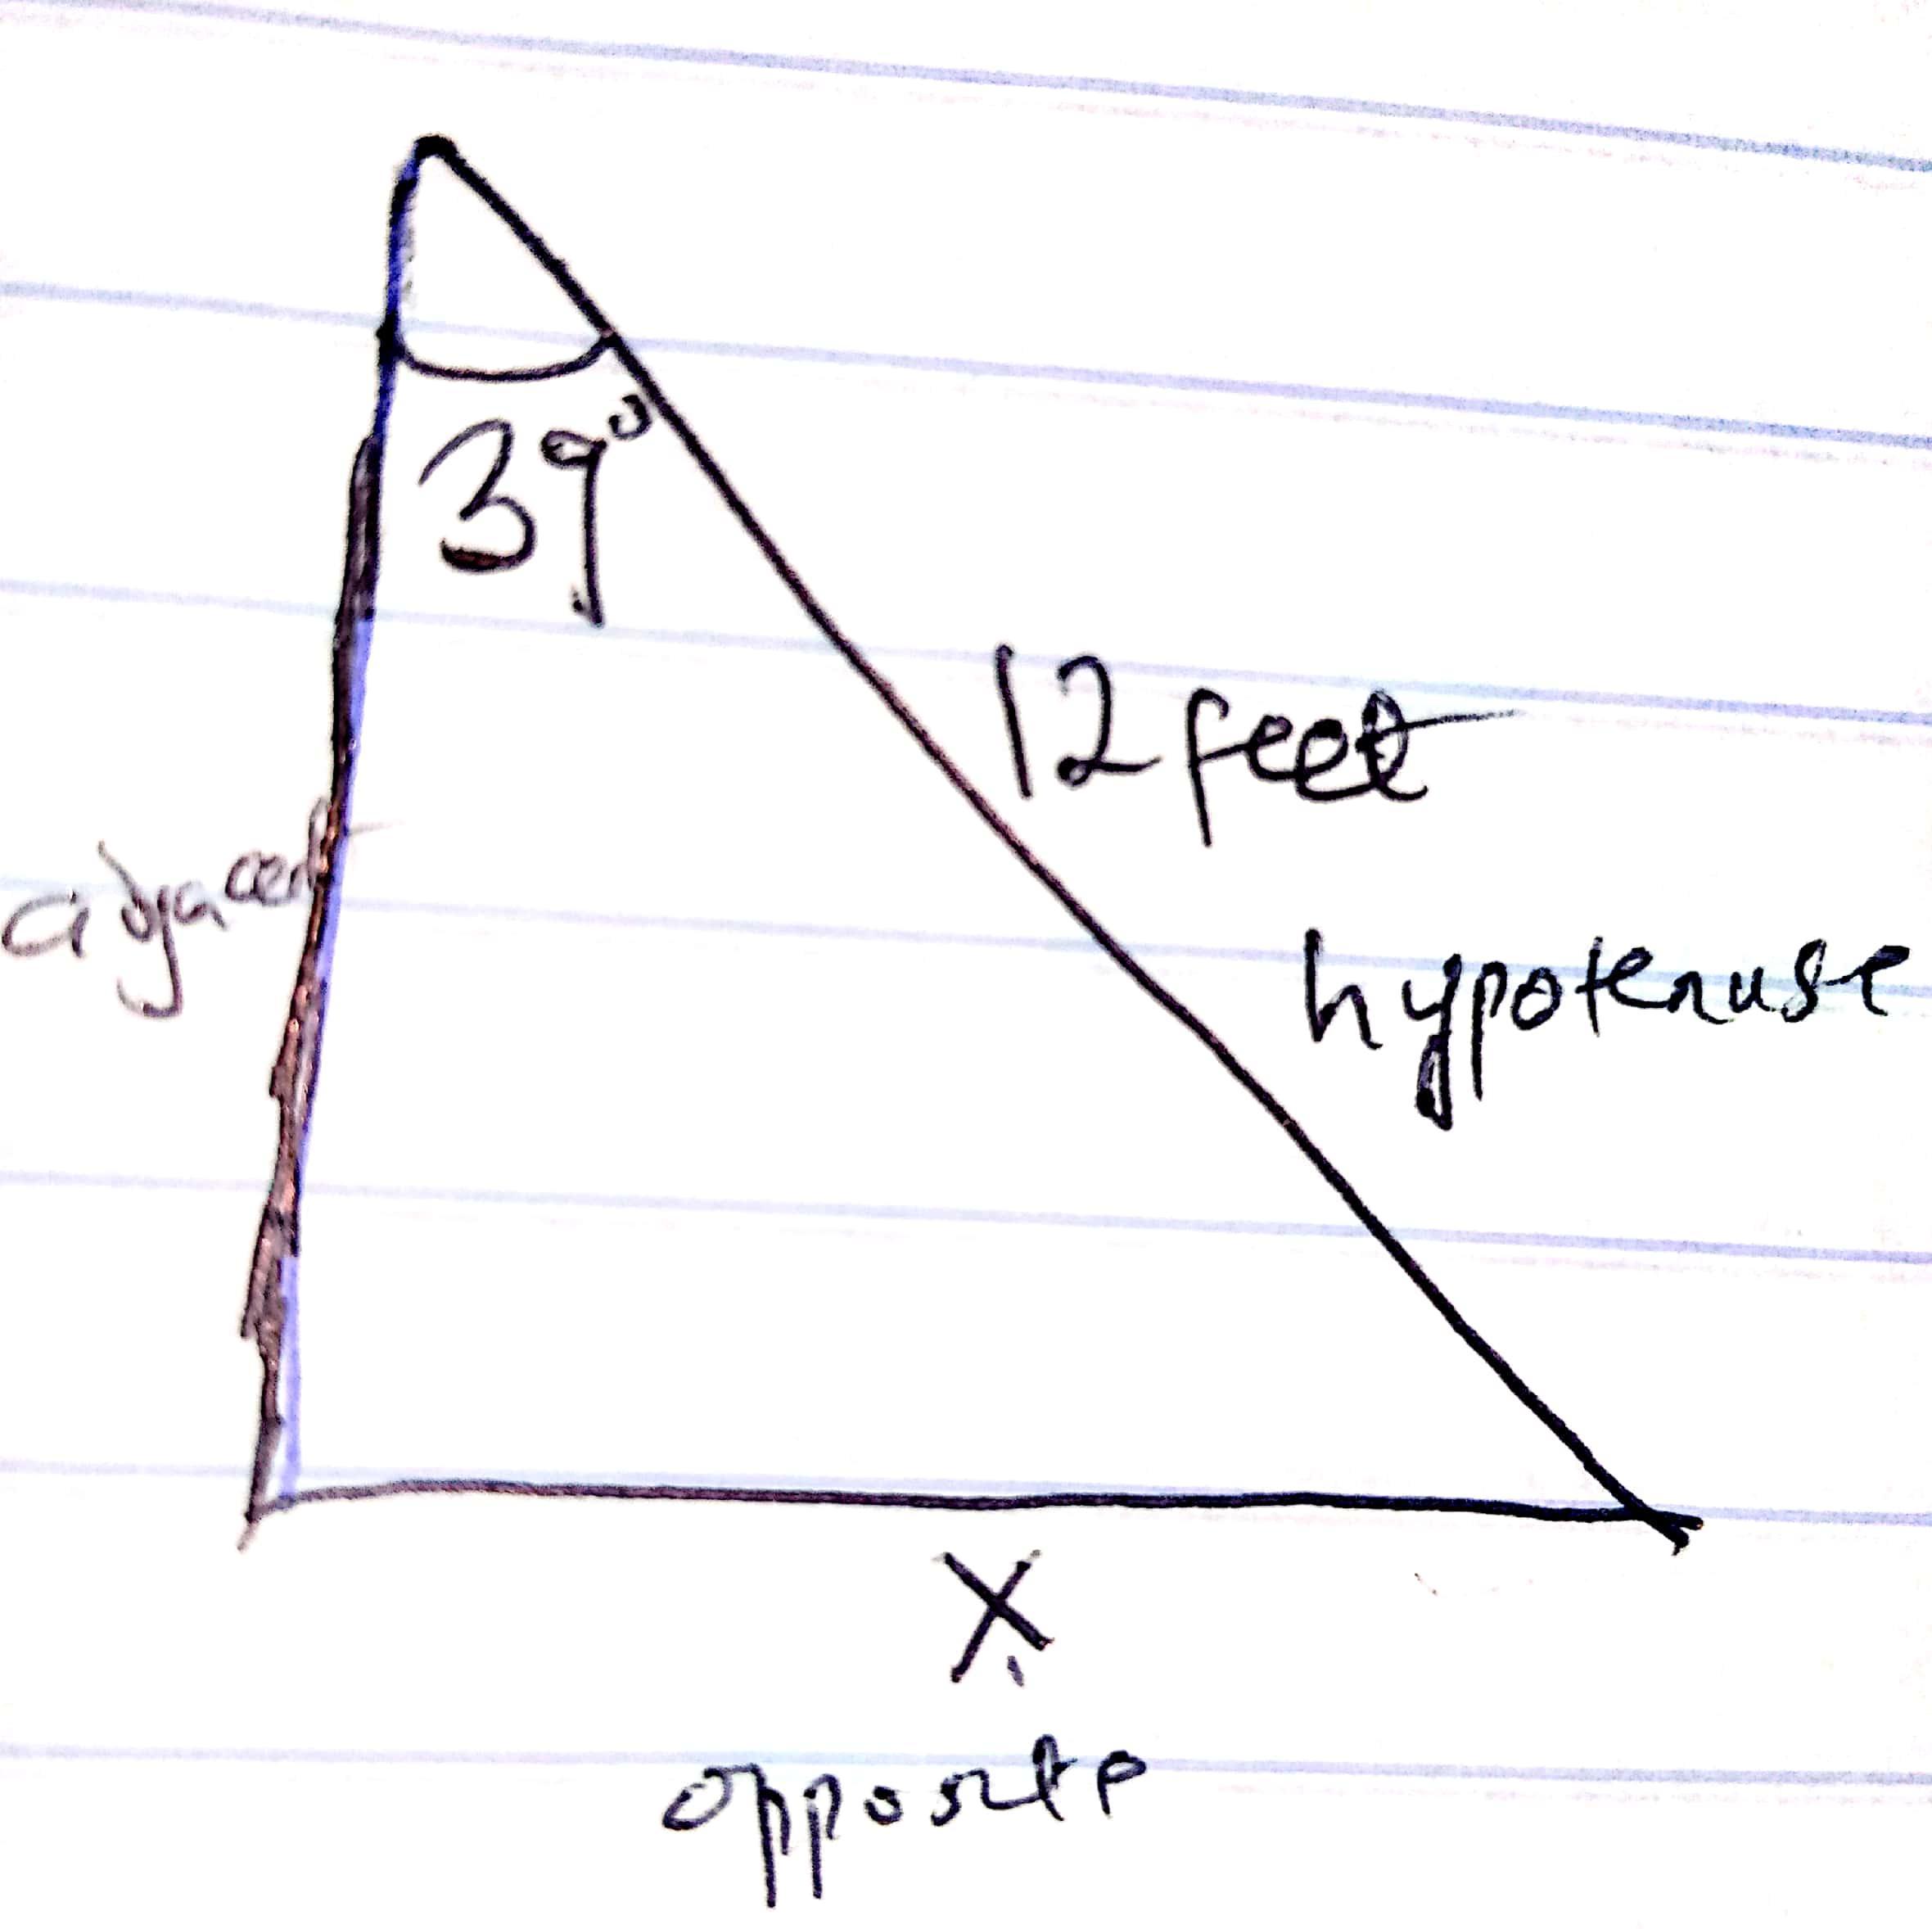 39°
12 feet
adjacent
hypotenuse
X
opposite